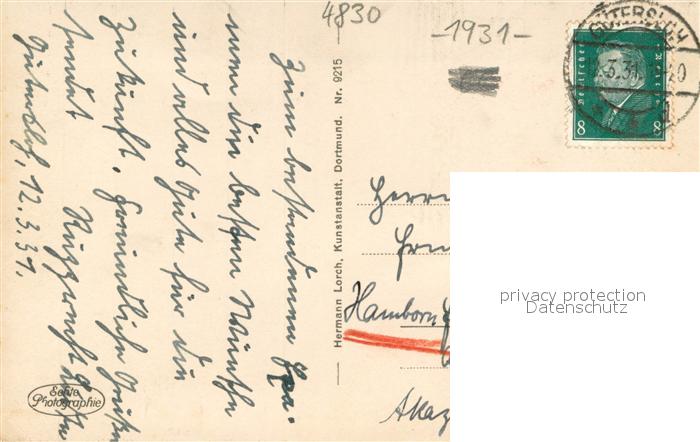 4830
-1931-
GÜTERSLOH
Deutsches Reich
8 8
Zum bestandenen
nun die besten Wünsche
und alles Gute für die
Zukunft. Freundliche Grüße
sendet
Gütersloh, 12.3.31.
Hermann Lorch, Kunstanstalt, Dortmund. Nr. 9215
Herrn
Hamborn
Echte
Photographie
privacy protection
Datenschutz